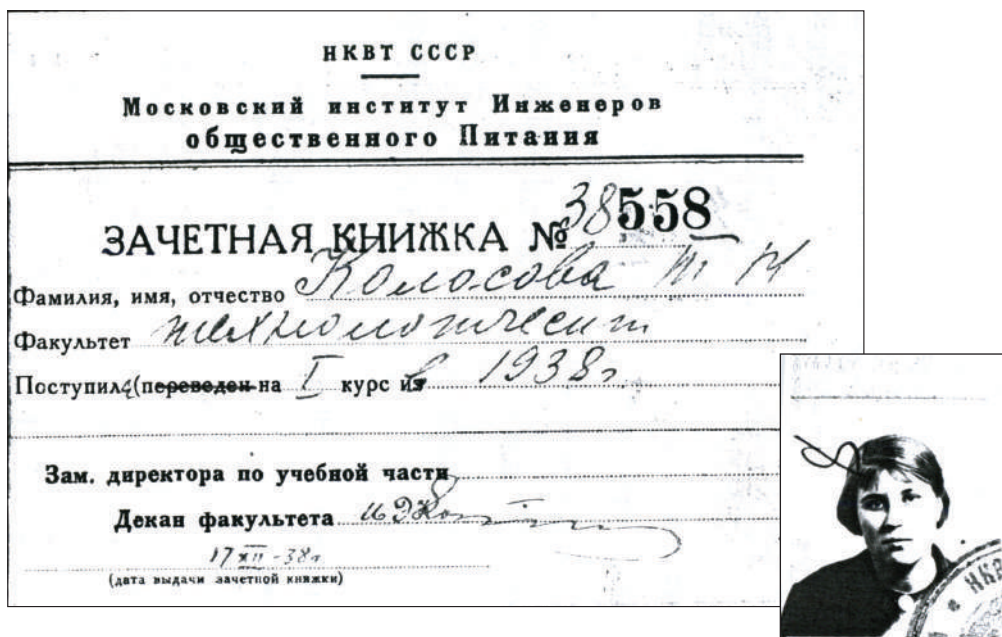 НКВТ СССР
Московский институт Инженеров
общественного Питания
ЗАЧЕТНАЯ КНИЖКА № 38558
Фамилия, имя, отчество Колосова
Факультет технологический
Поступила (переведен на I курс в 1938г
Зам. директора по учебной части
Декан факультета
17 XII -38г
(дата выдачи зачетной книжки)
НКВ